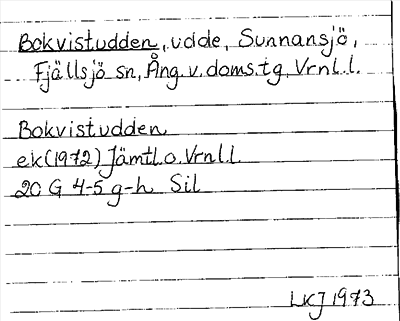 Bokvistudden, udde, Sunnansjö,
Fjällsjö sn, Ång. v. doms.tg, Vrnl.l.
Bokvistudden
ek(1972) Jämtl.o.Vrnl.l.
20 G 4-5 g-h Sil
LKJ 1973